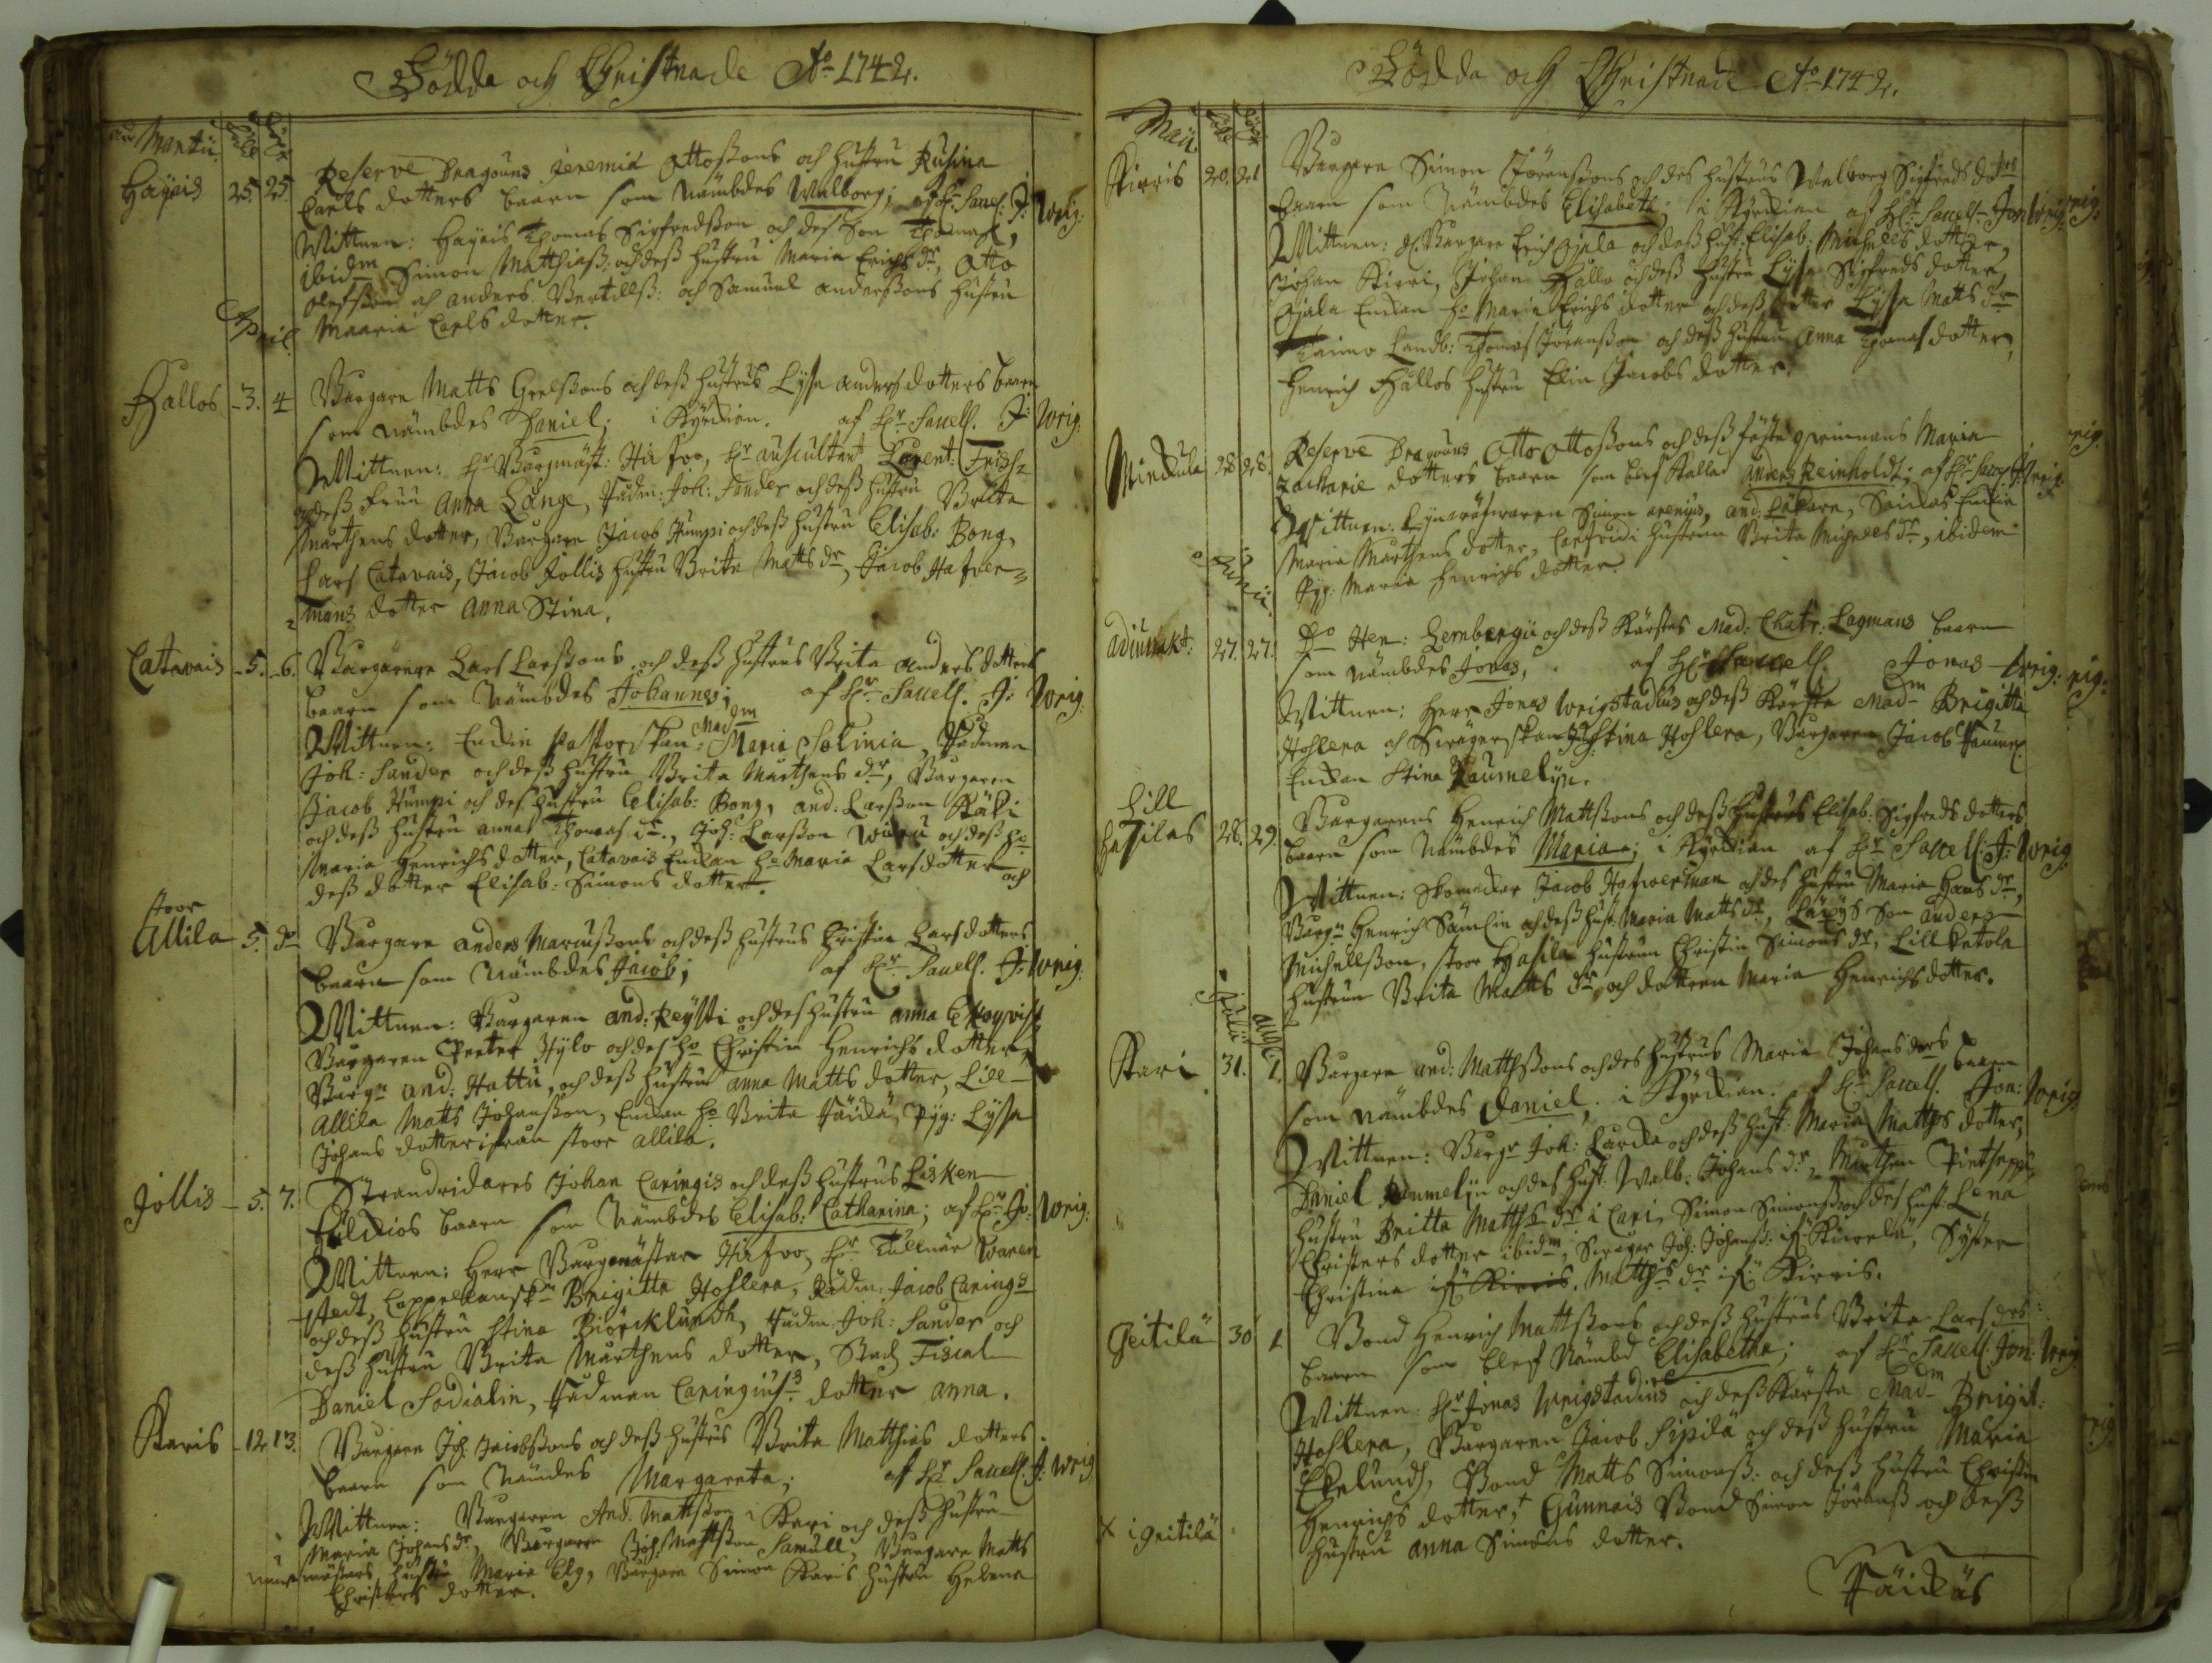 Födda och Christnade A:o 1742.
Martii
Haÿris 25. 25. Reserve Dragouns Jeremiæ Ottoßons och hustru Rusina
Carls dotters baarn som nämbdes Walborg; af H:r Sacell. J: Wrig:
Wittnen: Haÿris Thomas Sigfredsßon och des Son Thomas,
ibidm Simon Matthiaß: och deß hustru Maria Erichs dr, Otto
Olofsßon och anders Bertillß: och Samuel anderßons hustru
Maaria Carls dotter.
April.
Hallos 3. 4 Burgare Matts Grelsßons och deß hustrus Lysa anders dotters baarn
som nämbdes Daniel; i Kyrckian. af H:r Sacell. J: Wrig:
Wittnen: H:r Burgmäst: Häfvo, H:r auscultant Laurent: Frisch
och deß fruu Anna Länge, Rådm: Joh: Sander och deß hustru Brita
Mårthens dotter, Burgare Jacob Humpi och deß hustru Elisab: Bong,
Lars Catavais, Jacob Jollis hustru Brita Matts dr, Jacob Hafver=
mans dotter Anna Stina.
Catavais 5. 6. Burgarens Lars Larsßons och deß hustrus Brita anders dotters
baarn som Nämbdes Johannes; af H:r Sacell. J: Wrig:
Wittnen: Enckie Pastorskan: Madm Maria Solinia, Rådman
Joh: Sander och deß hustru Brita Mårthens dr, Burgaren
Jacob Humpi och des hustru Elisab: Bong, And: Larsßon Käki
och deß hustru anna Thomas dr., Joh: Larsßon Wieru och deß ho
Maria Henrichs dotter, Catavais Enckan ho Maria Lars dotter och
deß dotter Elisab: Simons dotter.
stoor
Allila 5. do Burgare anders Marcusßons och deß hustrus Christin Lars dotters
baarn som Nämbdes Jacob; af H:r Sacell. J: Wrig:
Wittnen: Burgaren And: Reÿsti och des hustru anna Ekqvist,
Burgaren Petter Hÿlo och des ho Christin Henrichs dotter,
Burgn And: Hattu, och deß hustru anna Matts dotter, Lill
Allila Matts Johansßon, Enckan ho Brita Fäickä, Pÿg: Lysa
Johans dotter ifrån stoor allila.
Jollis 5. 7. Strandridares Johan Caringis och deß hustrus Lisken
baarn som Nämbdes Elisab: Catharina; af H:r Jo: Wrig:
Wittnen: Herr Burgemästar Häfvo, H:r Tullnär Waren
stedt, Cappellansk:n Brigitta Hohlera, Rådm: Jacob Carings
och deß hustru Stina Biörcklundh, Rådm: Joh: Sander och
deß hustru Brita Mårthens dotter, Stads Fiscal
Daniel Sodialin, Rådman Caringius:s dotter Anna.
Karis 12. 13. Burgare Joh. Jacobsßons och deß hustrus Brita Matthies dotters
baarn som Nämdes Margareta; af H:r Sacell. J: Wrig
Wittnen: Burgaren And. Mattsßon i Kari och deß hustru
Maria Johans dr, Burgaren Joh: Mattsßon Samull, Burgare Matts
hustru Maria Elg, Burgare Simon Karis hustru Helena
Christers dotter.
Födda och Christnade A:o 1742.
Maii
Kirris 20. 21 Burgare Simon Jöransßons och des hustrus Walborg Sigfreds dotters
baarn som Nämbdes Elisabeth; i Kyrckian af H:r Sacell. Jon Wrig:
Wittnen: Burgare Erich Ojala och deß hust: Elisab: Michels dotter,
Johan Kirri, Johan Hallo och deß hustru Lysa Sigfreds dotter,
Ojala Enckan ho Maria Erichs dotter och deß dotter Lysa Matts dr
Landb: Thomas Jöransßon och deß hustru Anna Thomas dotter,
Henrich Hallos hustru Elin Jacobs dotter.
28 28. Reserve Dragouns Otto Ottoßons och deß fäste qvinnans Maria
Zacharie dotters baarn som blef kallad Anders Reinholdt; af H:r Sacell.
Wittnen: Simon arenius, and: Läkare, Enckia
Maria Mårthens dotter, hustrun Brita Michels dr, ibidem
Pÿg: Maria Henrichs dotter.
Junii
adiunkt: 27. 27. Do Hen: Lernbergii och deß Kärstes Mad: Chatr: Lagmans baarn
som Nämbdes Jonas, af H:r Sacell. Jonas Wrig:
Wittnen: Herr Jonas Wrigstadius och deß Kärste Madm Brigitta
Hohlera och Swägerskan Justina Hohlera, Burgaren Jacob Raumel.
Enckan Stina Raumelÿn.
Lill
Hasilas 28. 29. Burgarens Henrich Mattsßons och deß hustrus Elisab: Sigfreds dotters
baarn som Nämbdes Maria; i Kyrckian af H:r Sacell: J: Wrig
Wittnen: Skomakar Jacob Hafwerman och des hustru Maria Hans dr,
Burgn Henrich Sämlin och deß hust: Maria Matts dr, Son anders
Michelsßon, stoor Hasila hustrun Christin Simons dr, Lill ketola
hustrun Brita Matts dr och dottren Maria Henrichs dotter.
Julii. aug:
Kari 31. 1. Burgare and: Matthsßons och des hustrus Maria Johans ders baarn
som nämbdes Daniel; i Kyrckian. af H:r Sacell. Jon: Wrig:
Wittnen: Burgr Joh: Lurcka och deß hust: Maria Matths dotter,
Daniel Rumelÿn och des hust: Walb: Johans dr, Mårthen
hustru Britta Matths dr i Cari, Simon Simonsß: och des hust Lena
Christers dotter ibidm, Swåger Joh: Johansß: Syster
Christina if: Kirris. Matths dr if: Kirris.
Geitilä 30 1 Bond Henrich Mattsßons och deß hustrus Brita Lars drs
baarn som blef Nämbd Elisabetha; af H:r Sacell. Jon: Wrig
Wittnen: H:r Jonas Wrigstadius och deß Kärsta Madm Brigit:
Hohlera, Burgaren Jacob Sipilä och deß hustru Maria
Ekelundh, Bond Matts Simonß: och deß hustru Christin
Henrichs dotter, + Gunnais Bond Simon Jöranß och deß
x i Geitilä hustru Anna Simons dotter.
Fäickäs